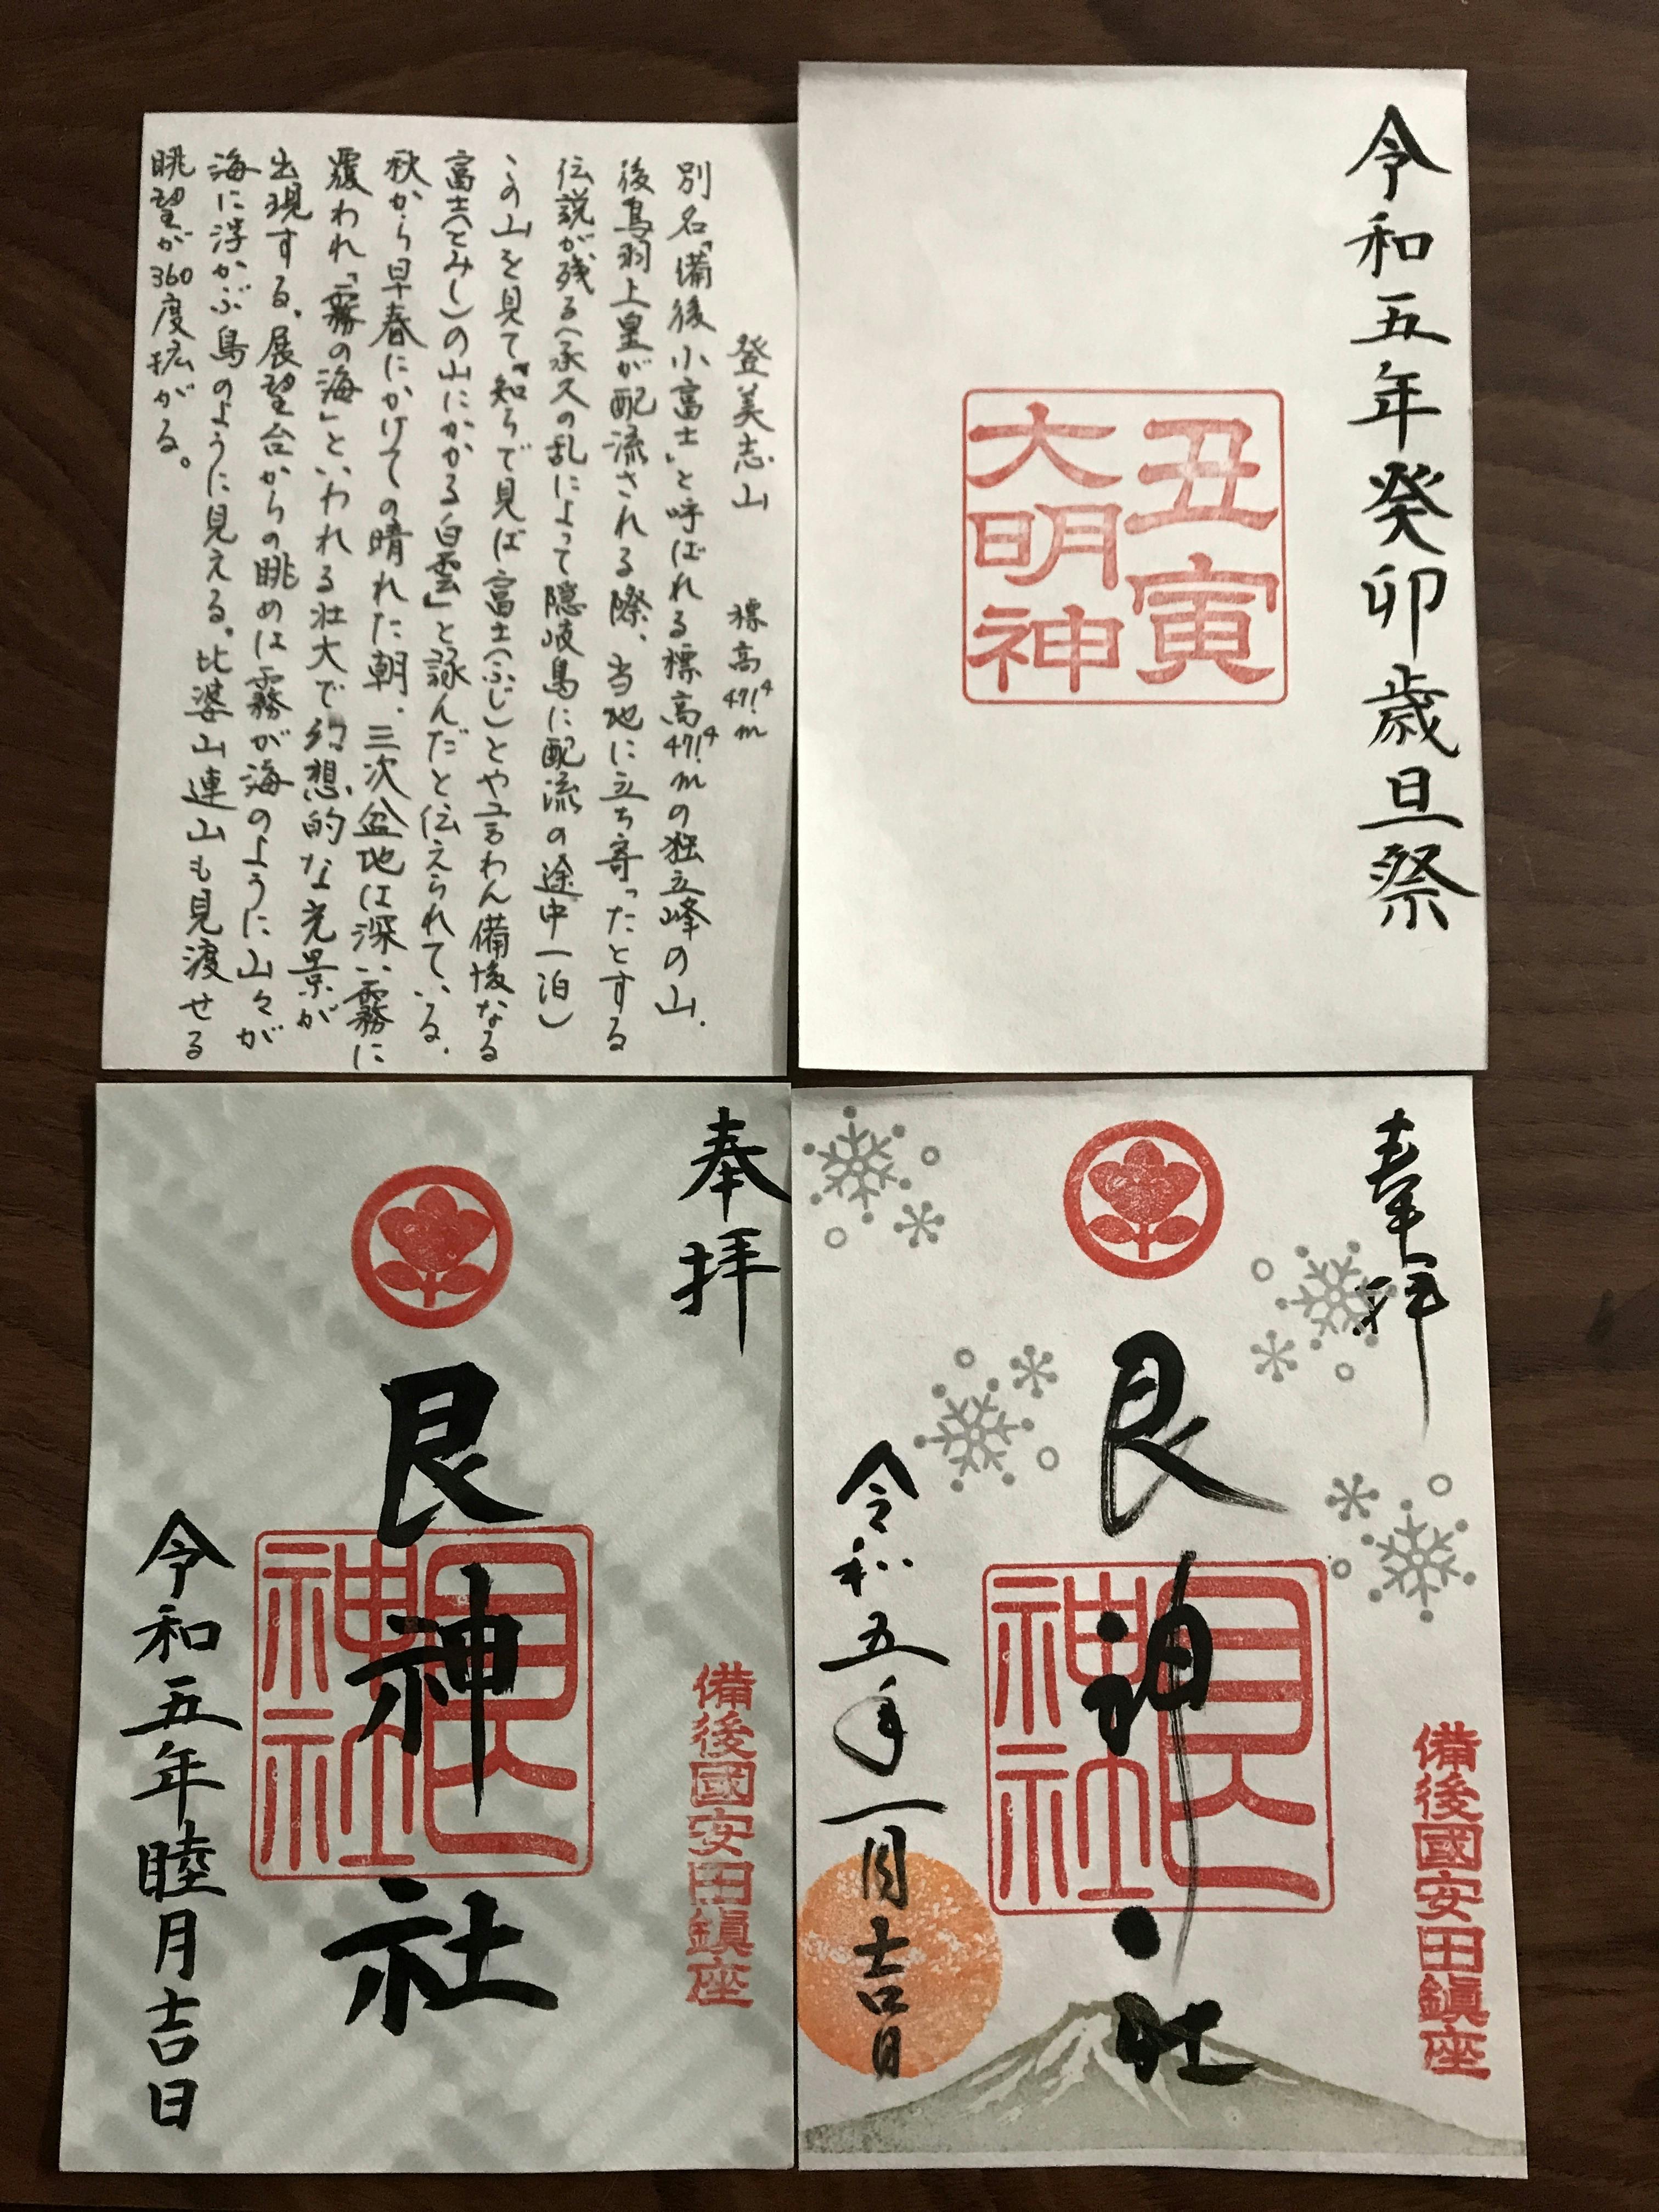 令和五年癸卯歳旦祭
丑寅
大明神
登美志山 標高471.4m
別名「備後小富士」と呼ばれる標高471.4mの独立峰の山.
後鳥羽上皇が配流される際、当地に立ち寄ったとする
伝説が残る(承久の乱によって隠岐島に配流の途中一泊)
この山を見て「知らで見ば富士(ふじ)とや言わん備後なる
富士(とみし)の山にかかる白雲」と詠んだと伝えられている.
秋から早春にかけての晴れた朝、三次盆地は深い霧に
覆われ「霧の海」といわれる壮大で幻想的な光景が
出現する。展望台からの眺めは霧が海のように山々が
海に浮かぶ島のように見える。比婆山連山も見渡せる
眺望が360度拡がる。
奉拝
艮神社
艮神社
備後國安田鎮座
令和五年一月吉日
奉拝
艮神社
艮神社
備後國安田鎮座
令和五年睦月吉日